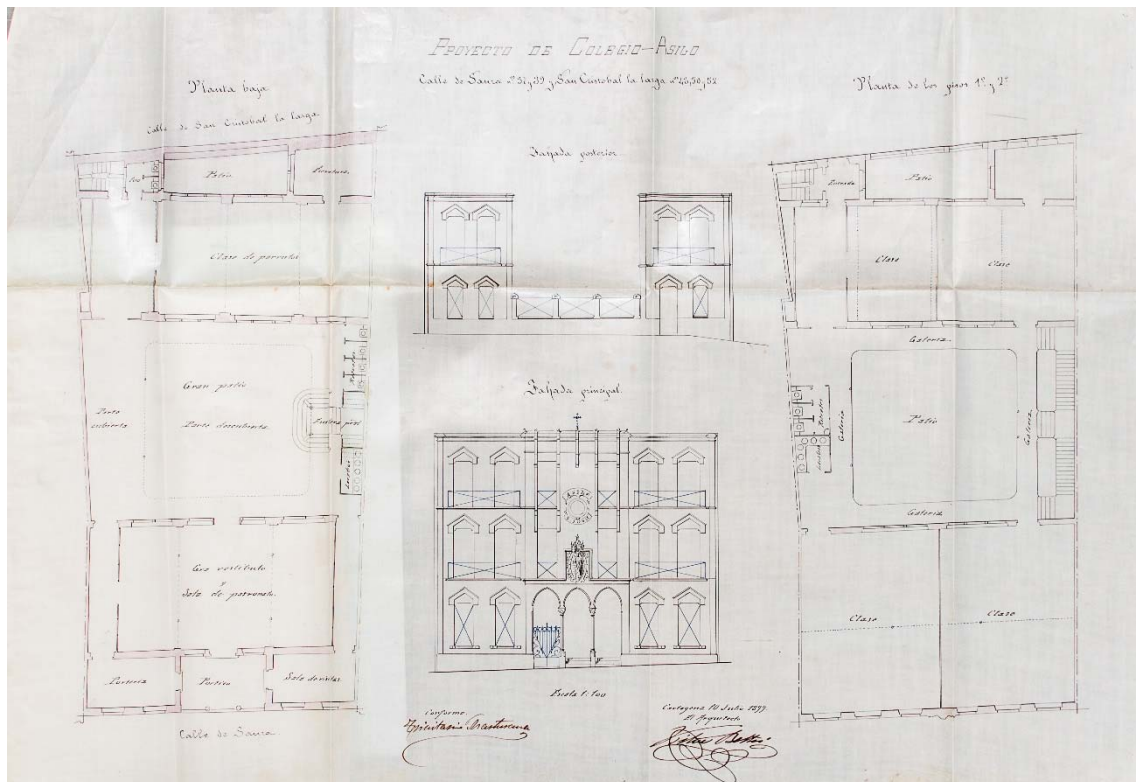 PROYECTO DE COLEGIO-ASILO
Calle de Saura nº 37 y 39 y San Cristobal la larga nº 48, 50, y 52
Planta baja
Calle de San Cristobal la larga
Patio
Clase de parvulos
Gran patio
Parte cubierta
Parte descubierta
Retretes
Lavabos
Gran vestibulo
y
Sala de patronato.
Porteria
Portico
Sala de visitas
Calle de Saura.
Fachada posterior
Fachada principal.
Escala 1:100
Conforme
Cartagena 10 Julio 1897
El Arquitecto
Planta de los pisos 1º y 2º
Patio
Clase
Clase
Galeria
Retretes
Lavabos
Galeria
Patio
Galeria
Galeria
Clase
Clase